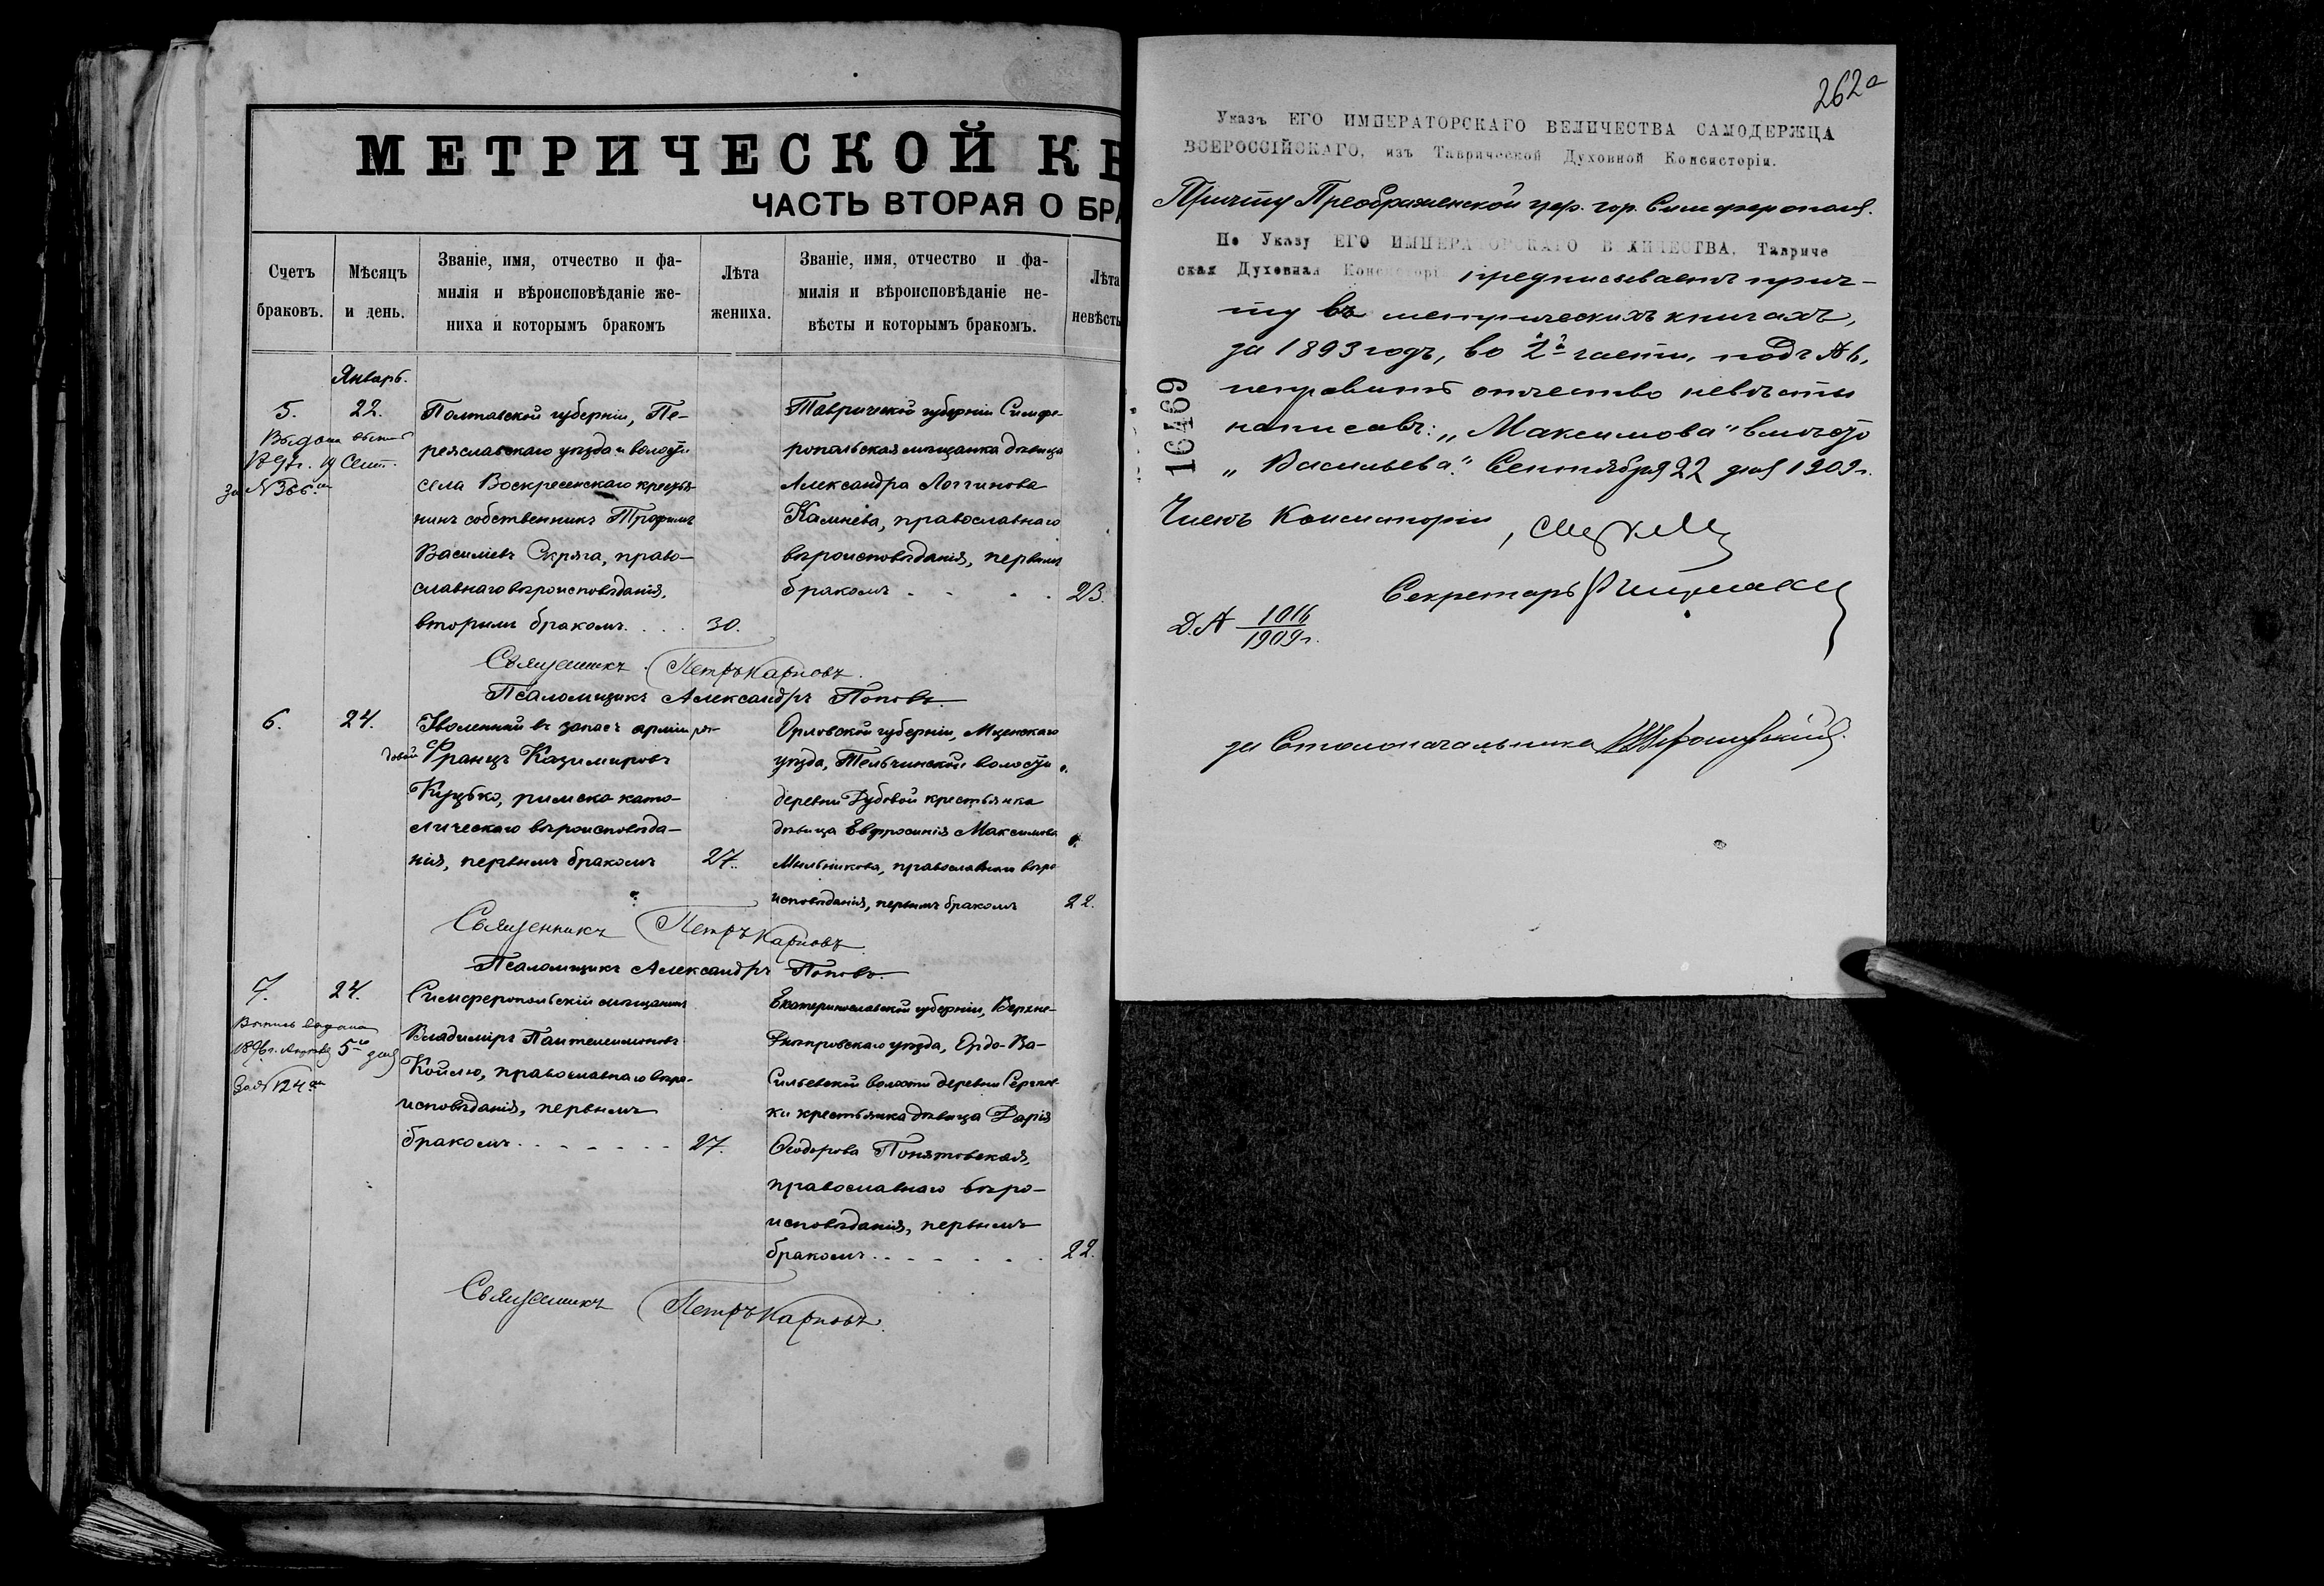 МЕТРИЧЕСКОЙ К
ЧАСТЬ ВТОРАЯ О БРА
Счетъ
браковъ.
Мѣсяцъ
и день.
Званіе, имя, отчество и фа-
милія и вѣроисповѣданіе же-
ниха и которымъ бракомъ
Лѣта
жениха.
Званіе, имя, отчество и фа-
милія и вѣроисповѣданіе не-
вѣсты и которымъ бракомъ.
Лѣта
невѣсты
Январь.
5.
22.
Полтавской губерніи, Пе-
реяславскаго уѣзда и волости
села Воскресенскаго крестья-
нинъ собственникъ Трофимъ
Василіевъ Скряга, право-
славнаго вѣроисповѣданія,
вторымъ бракомъ.
30.
Таврической губерніи Симфе-
ропольская мѣщанка дѣвица
Александра Логгинова
Камнева, православнаго
вѣроисповѣданія, первымъ
бракомъ
23.
Священникъ Петръ Карповъ.
Псаломщикъ Александръ Поповъ.
6.
24.
Уволенный въ запасъ арміи ря-
довой Францъ Казимировъ
Куцько, римско като-
лическаго вѣроисповѣда-
нія, первымъ бракомъ
27.
Орловской губерніи, Мценскаго
уѣзда, Тельчинской волости
деревни Дубовой крестьянка
дѣвица Евфросинія Максимова
Мыльникова, православнаго вѣро
исповѣданія, первымъ бракомъ
22.
Священникъ Петръ Карповъ
Псаломщикъ Александръ Поповъ.
7.
24.
Выпись выдана
5го дня
За № 124
Симферопольскій мѣщанинъ
Владиміръ Пантелеимоновъ
Койлю, православнаго вѣро-
исповѣданія, первымъ
бракомъ
27.
Екатеринославской губерніи, Верхне-
Днѣпровскаго уѣзда, Ордо-Ва-
сильевской волости деревни
ки крестьянка дѣвица Дарія
Ѳеодорова Понятовская,
православнаго вѣро-
исповѣданія, первымъ
бракомъ
22.
Священникъ Петръ Карповъ.
262а
Указъ ЕГО ИМПЕРАТОРСКАГО ВЕЛИЧЕСТВА САМОДЕРЖЦА
ВСЕРОССІЙСКАГО, изъ Таврической Духовной Консисторіи.
Причту Преображенской цер. гор. Симферополя.
По Указу ЕГО ИМПЕРАТОРСКАГО ВЕЛИЧЕСТВА, Тавриче
ская Духовная Консисторі предписываетъ прич-
ту въ метрическихъ книгахъ,
за 1893 годъ, во 2й части, подъ № 6,
исправить отчество невѣсты
написавъ: „Максимова" вмѣсто
„Васильева". Сентября 22 дня 1909 г.
16469
Членъ Консисторіи,
Секретарь
Д. № 1016
1909 г.
за Столоначальника